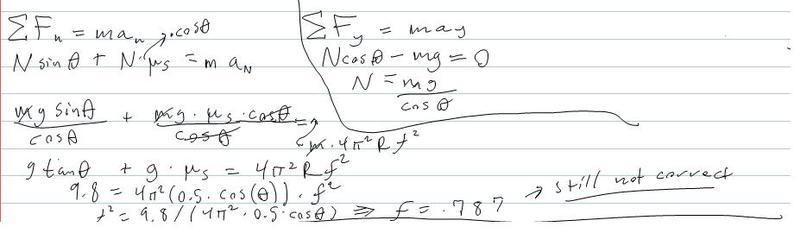 ΣFn = man
·cosθ
N sinθ + N·μs = m aN
ΣFy = may
Ncosθ - mg = 0
N = mg / cosθ
mg sinθ / cosθ + mg · μs · cosθ / cosθ = m · 4π²Rf²
g tanθ + g · μs = 4π²Rf²
9.8 = 4π²(0.5 · cos(θ)) · f²
f² = 9.8/(4π² · 0.5 · cosθ) ⇒ f = .787 → still not correct